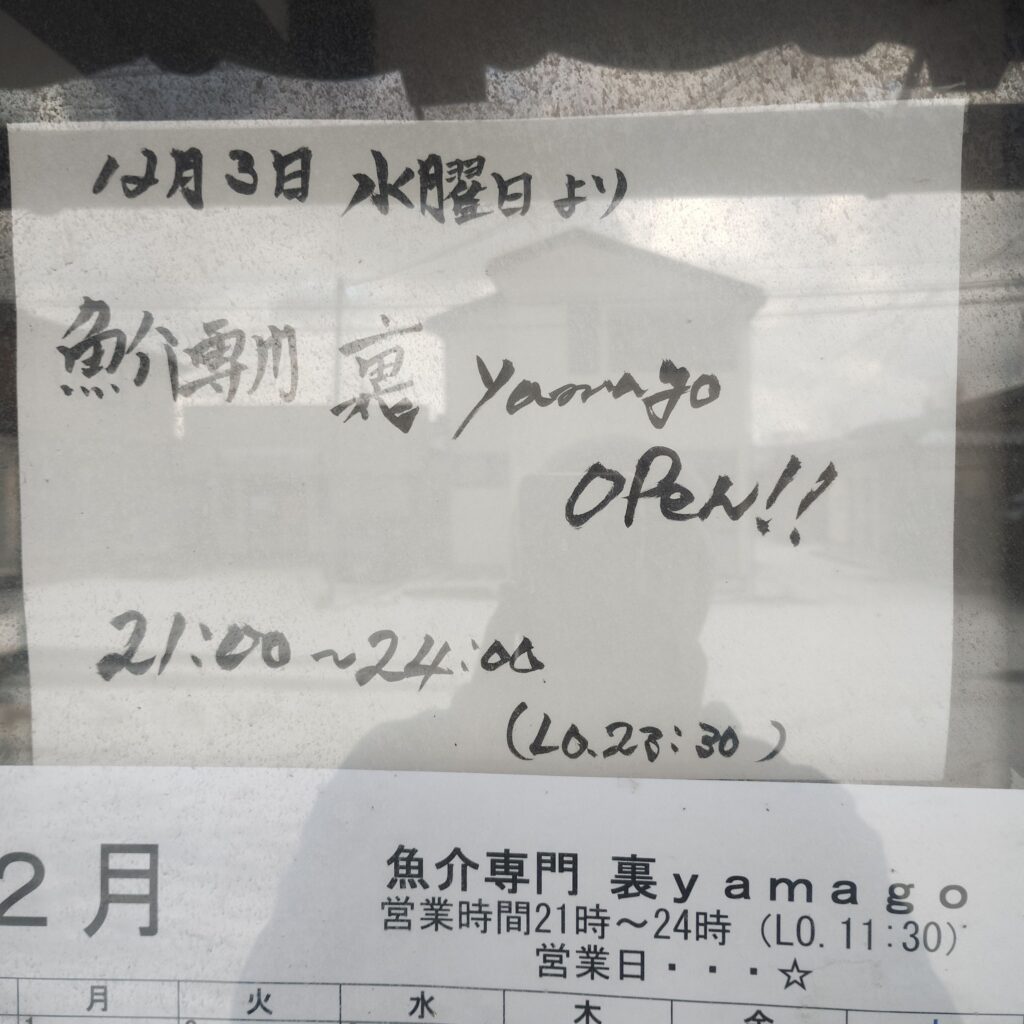 12月3日 水曜日より
魚介専門 裏 yamago
OPen!!
21:00~24:00
(LO.23:30)
2月
魚介専門 裏yamago
営業時間21時~24時 (LO.11:30)
営業日・・・☆
月 火 水 木 金